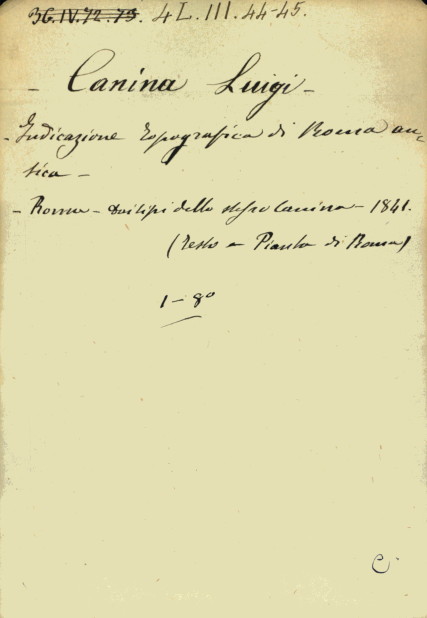 36.IV.72.73. 4 L. III. 44-45.
- Canina Luigi -
- Indicazione topografica di Roma an-
tica -
- Roma - Dai tipi dello stesso Canina - 1841.
(Testo e Pianta di Roma)
1 - 8º
C